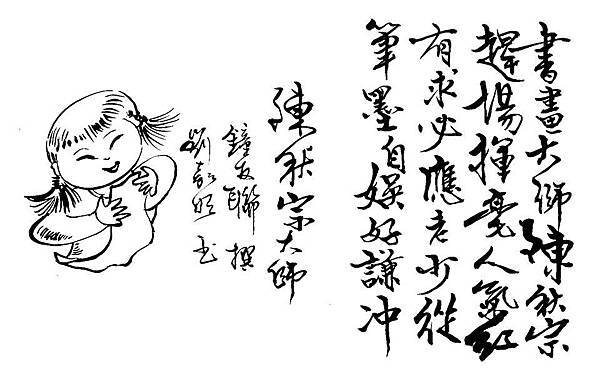 書畫大師陳秋宗
趕場揮毫人氣紅
有求必應老少從
筆墨自娛好謙沖
陳秋宗大師
鐘友聯 撰
劉嘉明 书